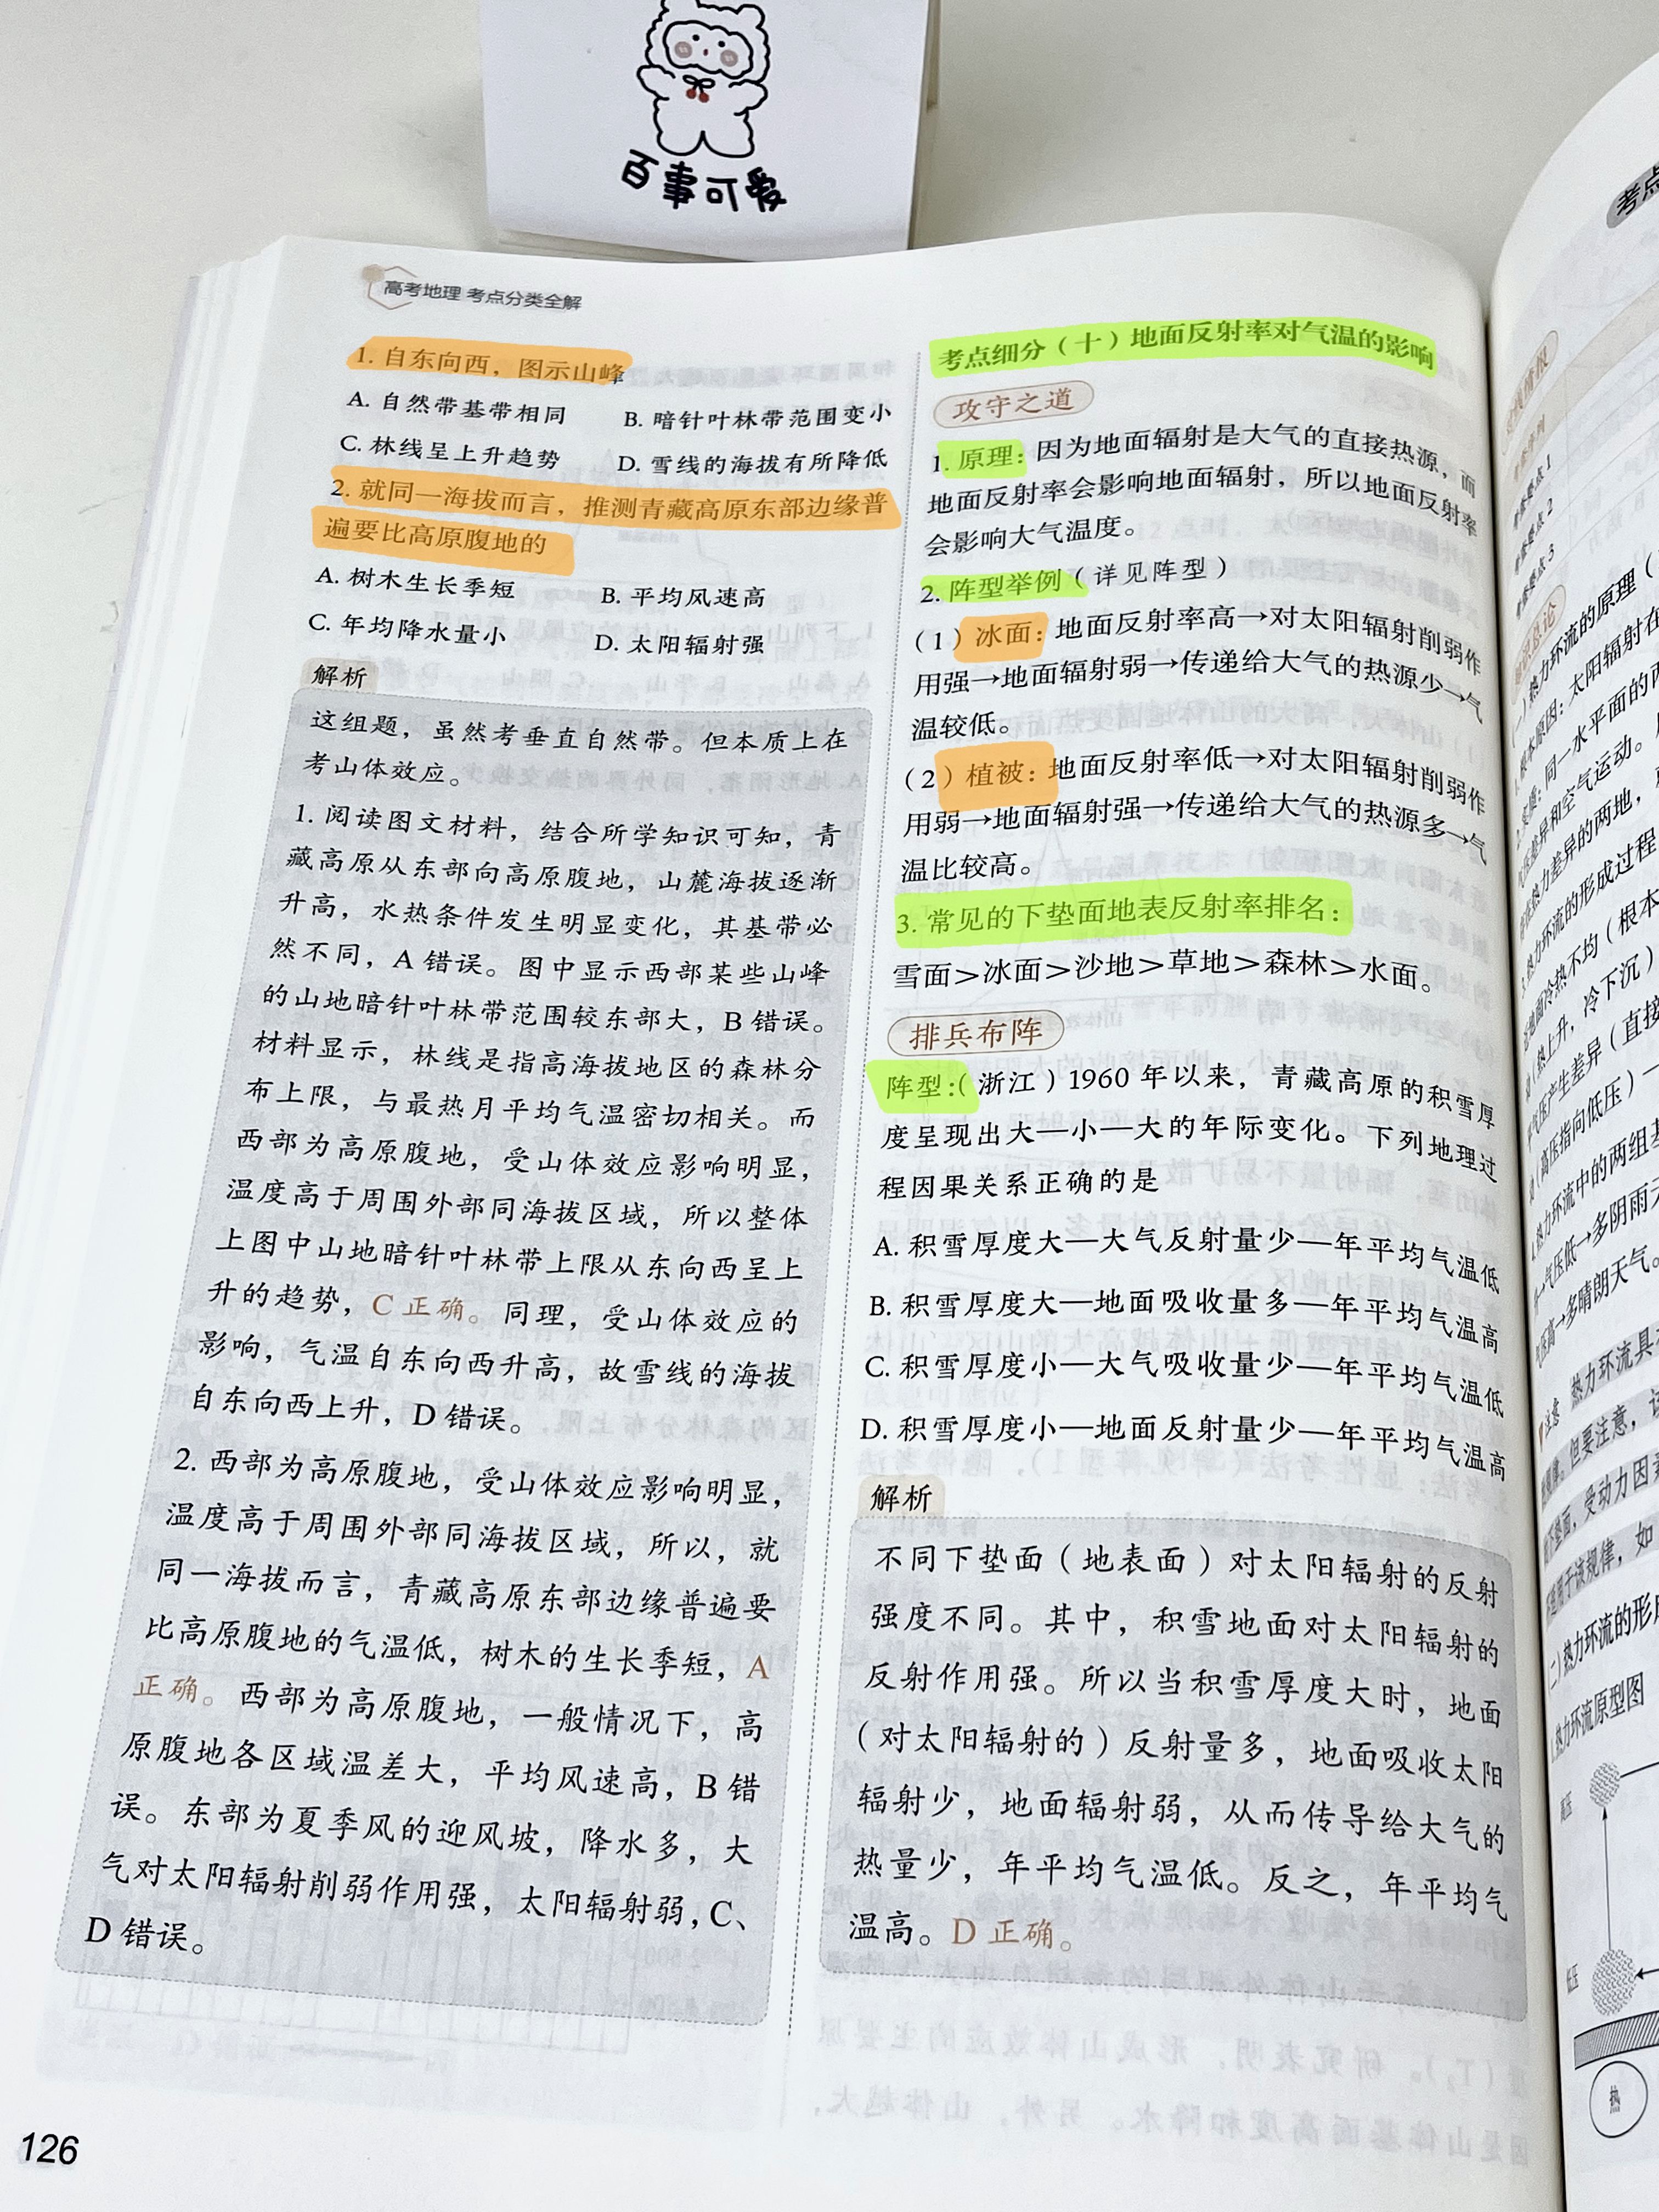 百事可爱
高考地理 考点分类全解
1. 自东向西，图示山峰
A. 自然带基带相同 B. 暗针叶林带范围变小
C. 林线呈上升趋势 D. 雪线的海拔有所降低
2. 就同一海拔而言，推测青藏高原东部边缘普
遍要比高原腹地的
A. 树木生长季短 B. 平均风速高
C. 年均降水量小 D. 太阳辐射强
解析
这组题，虽然考垂直自然带。但本质上在
考山体效应。
1. 阅读图文材料，结合所学知识可知，青
藏高原从东部向高原腹地，山麓海拔逐渐
升高，水热条件发生明显变化，其基带必
然不同，A 错误。图中显示西部某些山峰
的山地暗针叶林带范围较东部大，B 错误。
材料显示，林线是指高海拔地区的森林分
布上限，与最热月平均气温密切相关。而
西部为高原腹地，受山体效应影响明显，
温度高于周围外部同海拔区域，所以整体
上图中山地暗针叶林带上限从东向西呈上
升的趋势，C 正确。同理，受山体效应的
影响，气温自东向西升高，故雪线的海拔
自东向西上升，D 错误。
2. 西部为高原腹地，受山体效应影响明显，
温度高于周围外部同海拔区域，所以，就
同一海拔而言，青藏高原东部边缘普遍要
比高原腹地的气温低，树木的生长季短，A
正确。西部为高原腹地，一般情况下，高
原腹地各区域温差大，平均风速高，B 错
误。东部为夏季风的迎风坡，降水多，大
气对太阳辐射削弱作用强，太阳辐射弱，C、
D 错误。
126
考点细分（十）地面反射率对气温的影响
攻守之道
1. 原理：因为地面辐射是大气的直接热源，而
地面反射率会影响地面辐射，所以地面反射率
会影响大气温度。
2. 阵型举例（详见阵型）
（1）冰面：地面反射率高→对太阳辐射削弱作
用强→地面辐射弱→传递给大气的热源少→气
温较低。
（2）植被：地面反射率低→对太阳辐射削弱作
用弱→地面辐射强→传递给大气的热源多→气
温比较高。
3. 常见的下垫面地表反射率排名：
雪面>冰面>沙地>草地>森林>水面。
排兵布阵
阵型：（浙江）1960 年以来，青藏高原的积雪厚
度呈现出大—小—大的年际变化。下列地理过
程因果关系正确的是
A. 积雪厚度大—大气反射量少—年平均气温低
B. 积雪厚度大—地面吸收量多—年平均气温高
C. 积雪厚度小—大气吸收量少—年平均气温低
D. 积雪厚度小—地面反射量少—年平均气温高
解析
不同下垫面（地表面）对太阳辐射的反射
强度不同。其中，积雪地面对太阳辐射的
反射作用强。所以当积雪厚度大时，地面
（对太阳辐射的）反射量多，地面吸收太阳
辐射少，地面辐射弱，从而传导给大气的
热量少，年平均气温低。反之，年平均气
温高。D 正确。
考点
热力环流的原理（
根本原因：太阳辐射在
同一水平面的两
热力环流的形成过程
地面冷热不均（根本
（热上升，冷下沉）
产生差异（直接
（高压指向低压）
热力环流中的两组基
气压低→多阴雨天
气压高→多晴朗天气。
注意
热力环流具
但要注意，该
下垫面，受动力因素
适用于该规律，如
热力环流的形成
热力环流原型图
低压
热